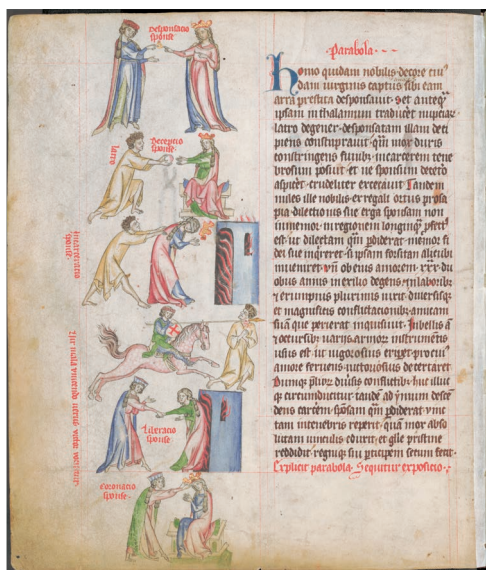 Desponsacio
sponse
latro
Deceptio
sponse
Liberacio
sponse
Coronacio
sponse
Parabola
Homo quidam nobilis decore cuiꝰ
dam uirginis captus sibi eam
arra prestita desponsauit set anteq̄
ipsam in thalamum traduceret nupciaꝝ
latro degener desponsatam illam deci
piens constupravit q̄m mox duris
constringens in carcerem tene
brosum posuit et ne sponsum decero
aspiceret crudeliter excecauit Tandem
miles ille nobilis ex regali ortus prosa
pia dilectionis sue erga sponsam non
inmemor in regionem longinq̄
est ut dilectam q̄m ꝑdiderat memor fi
dei sue inqreret si ipsam forsitan alicubi
inueniret vn̄ ob eius amorem xxx du
obus annis in exilio degens in laborib;
et erumpnis plurimis uixit diuersisq;
et magnificis amicam
suā que perierat inquisiuit In bellis
uarijs armoꝝ instrumētis
usus est ut uigorosius
amore feruens uictoriosius decertaret
huc illuc
q; circumduceret tandē ad ymum descē
dens carcerem spōsam q̄m ꝑdiderat vinc
tam in tenebris reperit quā mox abso
lutam uinculis eduxit et gl̄ie pristine
reddidit regniq; sui ꝑticipem secum fecit
Explicit parabola Sequitur expositio